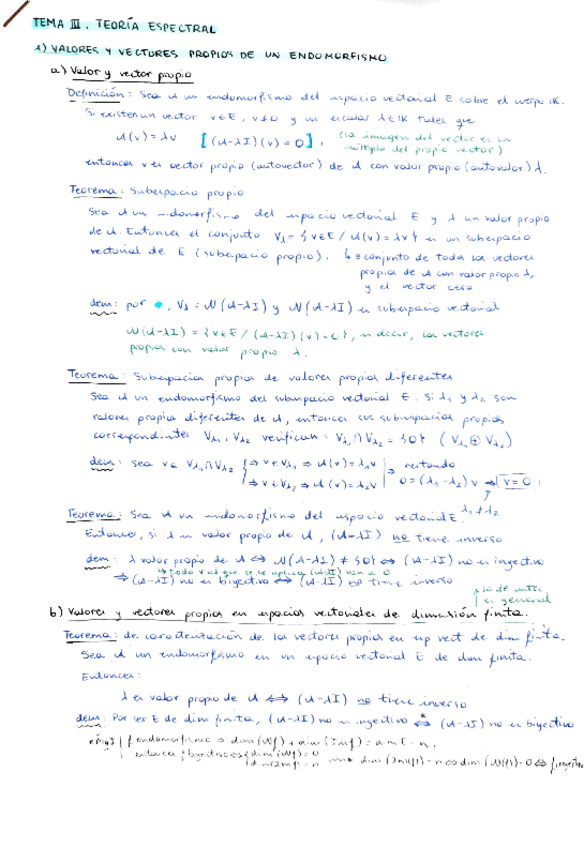 TEMA III. TEORÍA ESPECTRAL
1) VALORES Y VECTORES PROPIOS DE UN ENDOMORFISMO
a) Valor y vector propio
Definición: Sea U un endomorfismo del espacio vectorial E sobre el cuerpo IK.
Si existen un vector v∈E, v≠0 y un escalar λ∈IK tales que
U(v) = λv [(U-λI)(v) = 0], (la imagen del vector es un
múltiplo del propio vector)
entonces v es vector propio (autovector) de U con valor propio (autovalor) λ.
Teorema: Subespacio propio
Sea U un endomorfismo del espacio vectorial E y λ un valor propio
de U. Entonces el conjunto Vλ = {v∈E / U(v) = λv} es un subespacio
vectorial de E (subespacio propio). ↳ = conjunto de todos los vectores
propios de U con valor propio λ,
y el vector cero
dem: por •, Vλ = N(U-λI) y N(U-λI) es subespacio vectorial
N(U-λI) = {v∈E / (U-λI)(v) = 0}, es decir, los vectores
propios con valor propio λ.
Teorema: Subespacios propios de valores propios diferentes
Sea U un endomorfismo del subespacio vectorial E. Si λ₁ y λ₂ son
valores propios diferentes de U, entonces sus subespacios propios
correspondientes Vλ₁, Vλ₂ verifican: Vλ₁∩Vλ₂ = {0} (Vλ₁⊕Vλ₂)
dem: sea v∈Vλ₁∩Vλ₂ {⇒ v∈Vλ₁ ⇒ U(v) = λ₁v | restando
⇒ v∈Vλ₂ ⇒ U(v) = λ₂v | ⇒ 0 = (λ₁-λ₂)v ⇒ v = 0
λ₁≠λ₂
Teorema: Sea U un endomorfismo del espacio vectorial E.
Entonces, si λ es valor propio de U, (U-λI) no tiene inverso
dem: λ valor propio de U ⇔ N(U-λI) ≠ {0} ⇔ (U-λI) no es inyectivo
↳ todo v al que se le aplica (U-λI) van a 0
⇒ (U-λI) no es biyectivo ⇔ (U-λI) no tiene inverso
lo de antes
es general
b) Valores y vectores propios en espacios vectoriales de dimensión finita.
Teorema: de caracterización de los vectores propios en esp vect de dim finita.
Sea U un endomorfismo en un espacio vectorial E de dim finita.
Entonces:
λ es valor propio de U ⇔ (U-λI) no tiene inverso
dem: Por ser E de dim finita, (U-λI) no es inyectivo ⇔ (U-λI) no es biyectivo
f endomorfismo ⇒ dim(Nf) + dim(Imf) = dim E = n,
entonces f biyectivo ⇔ {dim(Nf) = 0
dim(Imf) = n dim(Im(f)) = n ⇔ dim(N(f)) = 0 ⇔ f inyectivo